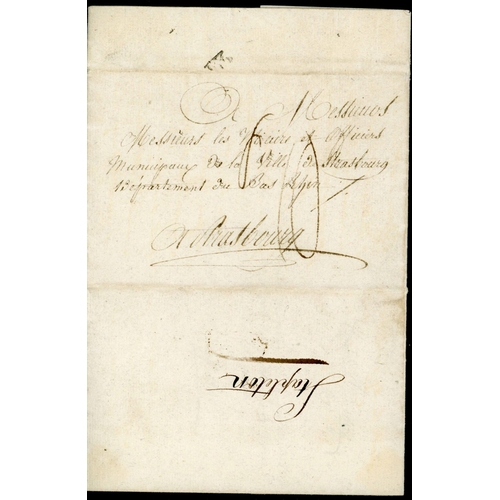 A Messieurs
Messieurs les Maire, et Officiers
Municipaux de la Ville de Strasbourg
Département du Bas Rhin
A Strasbourg
Stapleton